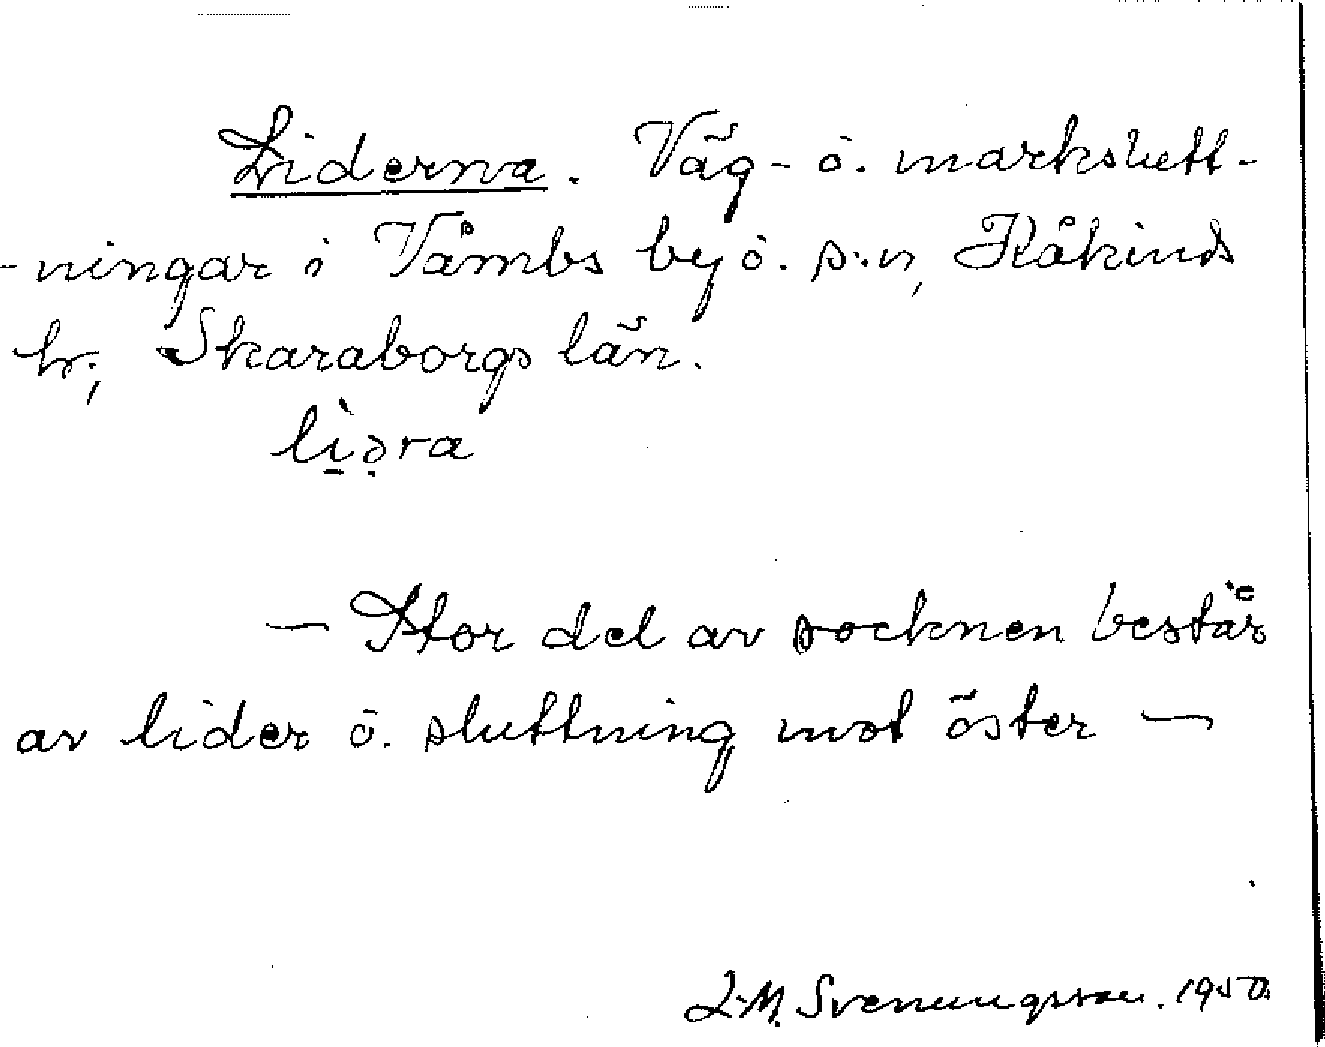 Liderna. Väg- ö. markslutt-
-ningar i Våmbs by ö. s:n, Kåkinds
hr., Skaraborgs län.
li̱ə̣ra
— Stor del av socknen består
av lider ö. sluttning mot öster —
L-M. Svenungsson. 1950.